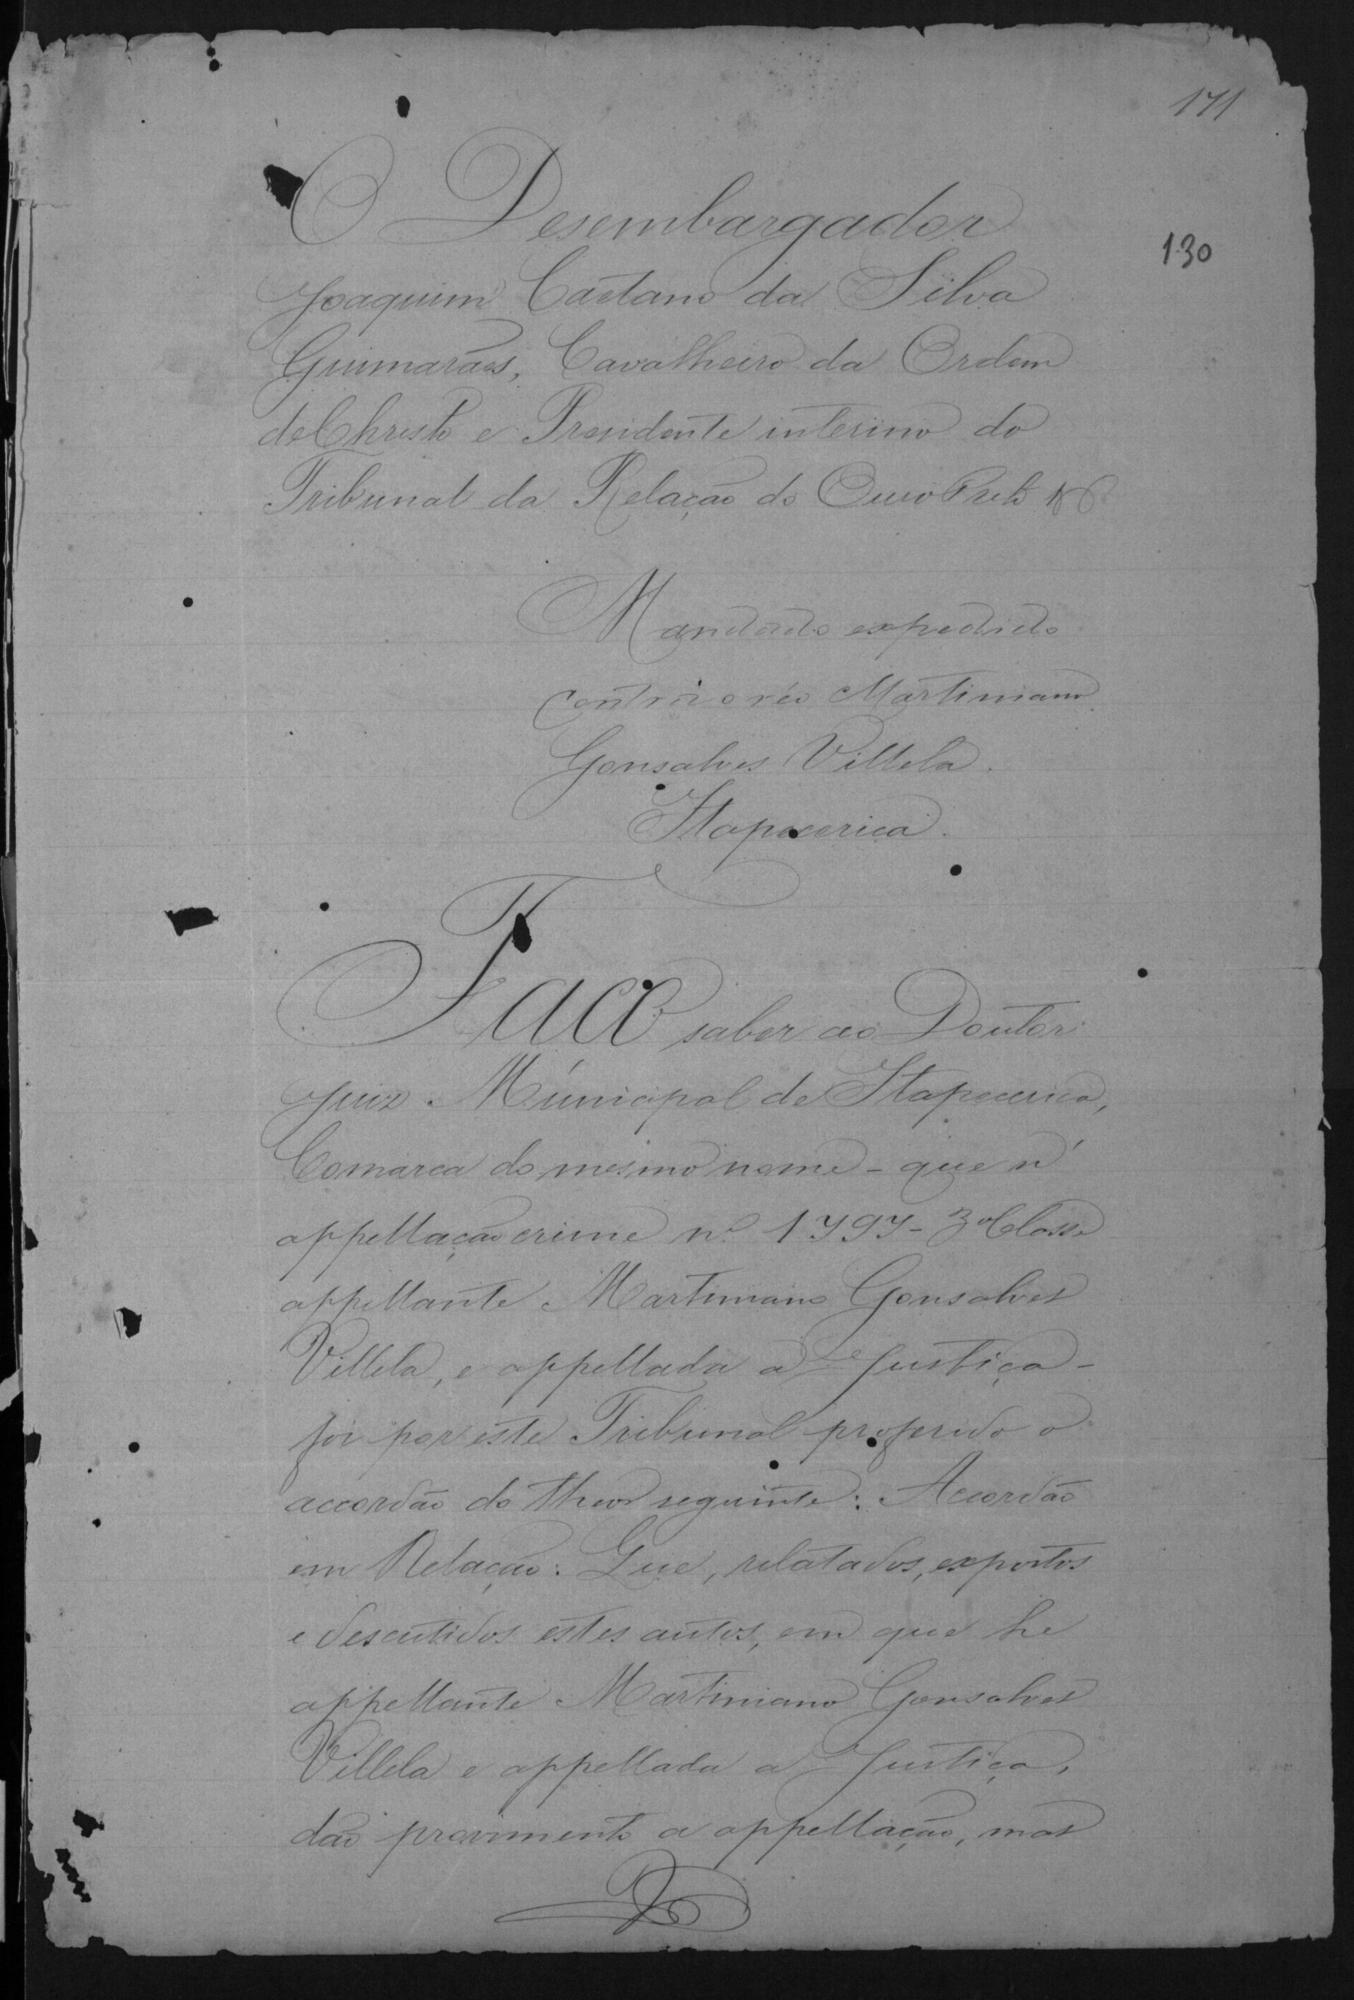 171
O Desembargador
130
Joaquim Caetano da Silva
Guimarães, Cavalheiro da Ordem
de Christo e Presidente interino do
Tribunal da Relação do Ouro Preto &
Mandado expedido
contra o réo Martiniano
Gonsalves Villela.
Itapecerica.
Faço saber ao Doutor
Juiz Municipal de Itapecerica,
Comarca do mesmo nome - que n'
appellação crime nº 1797 - 3ª Classe
appellante Martiniano Gonsalves
Villela, e appellada a Justiça -
foi por este Tribunal proferido o
accordão do theor seguinte: Accordão
em Relação: Que, relatados, expostos
e descutidos estes autos, em que he
appellante Martiniano Gonsalves
Villela e appellada a Justiça,
dão provimento a appellação, mas